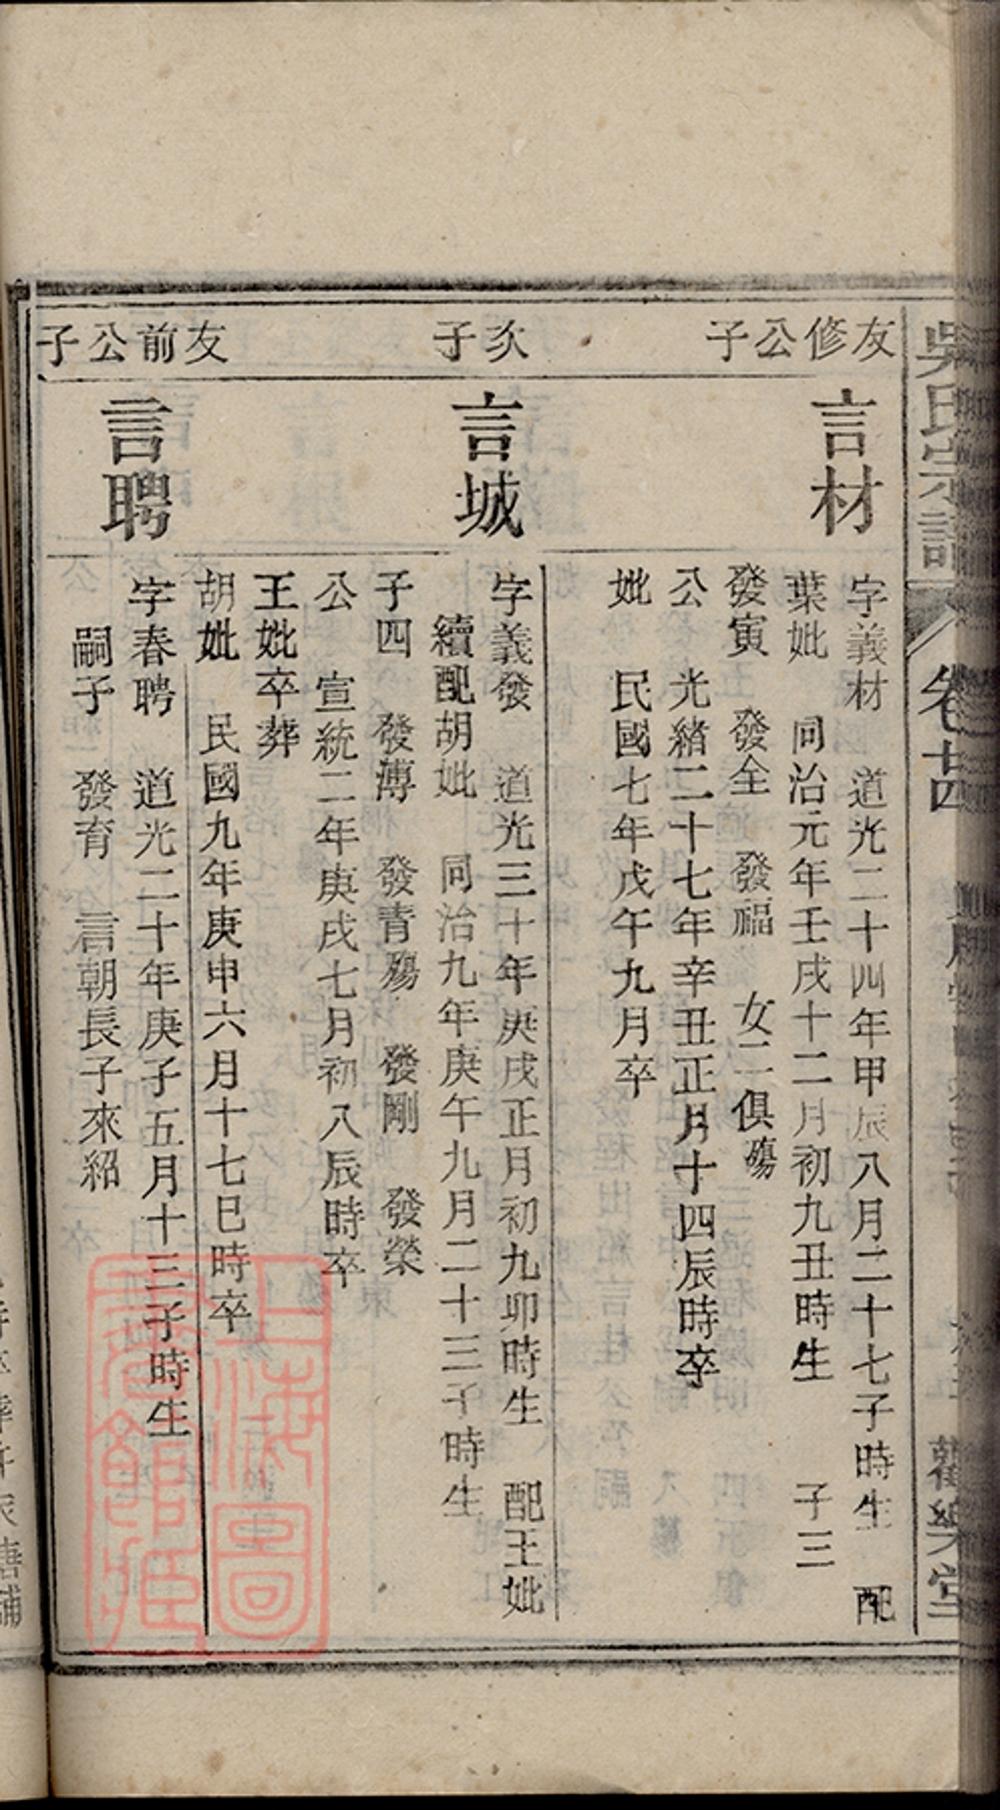 吳氏宗譜
卷廿四
友修公子
言材
字義材 道光二十四年甲辰八月二十七子時生 配
葉妣 同治元年壬戌十二月初九丑時生 子三
發寅 發全 發福 女二俱殤
公 光緒二十七年辛丑正月十四辰時卒
妣 民國七年戊午九月卒
次子
言城
字義發 道光三十年庚戌正月初九卯時生 配王妣
續配胡妣 同治九年庚午九月二十三子時生
子四 發溥 發青殤 發剛 發榮
公 宣統二年庚戌七月初八辰時卒
王妣卒葬
胡妣 民國九年庚申六月十七巳時卒
友前公子
言聘
字春聘 道光二十年庚子五月十三子時生
嗣子 發育 言朝長子來紹
上海圖書館藏